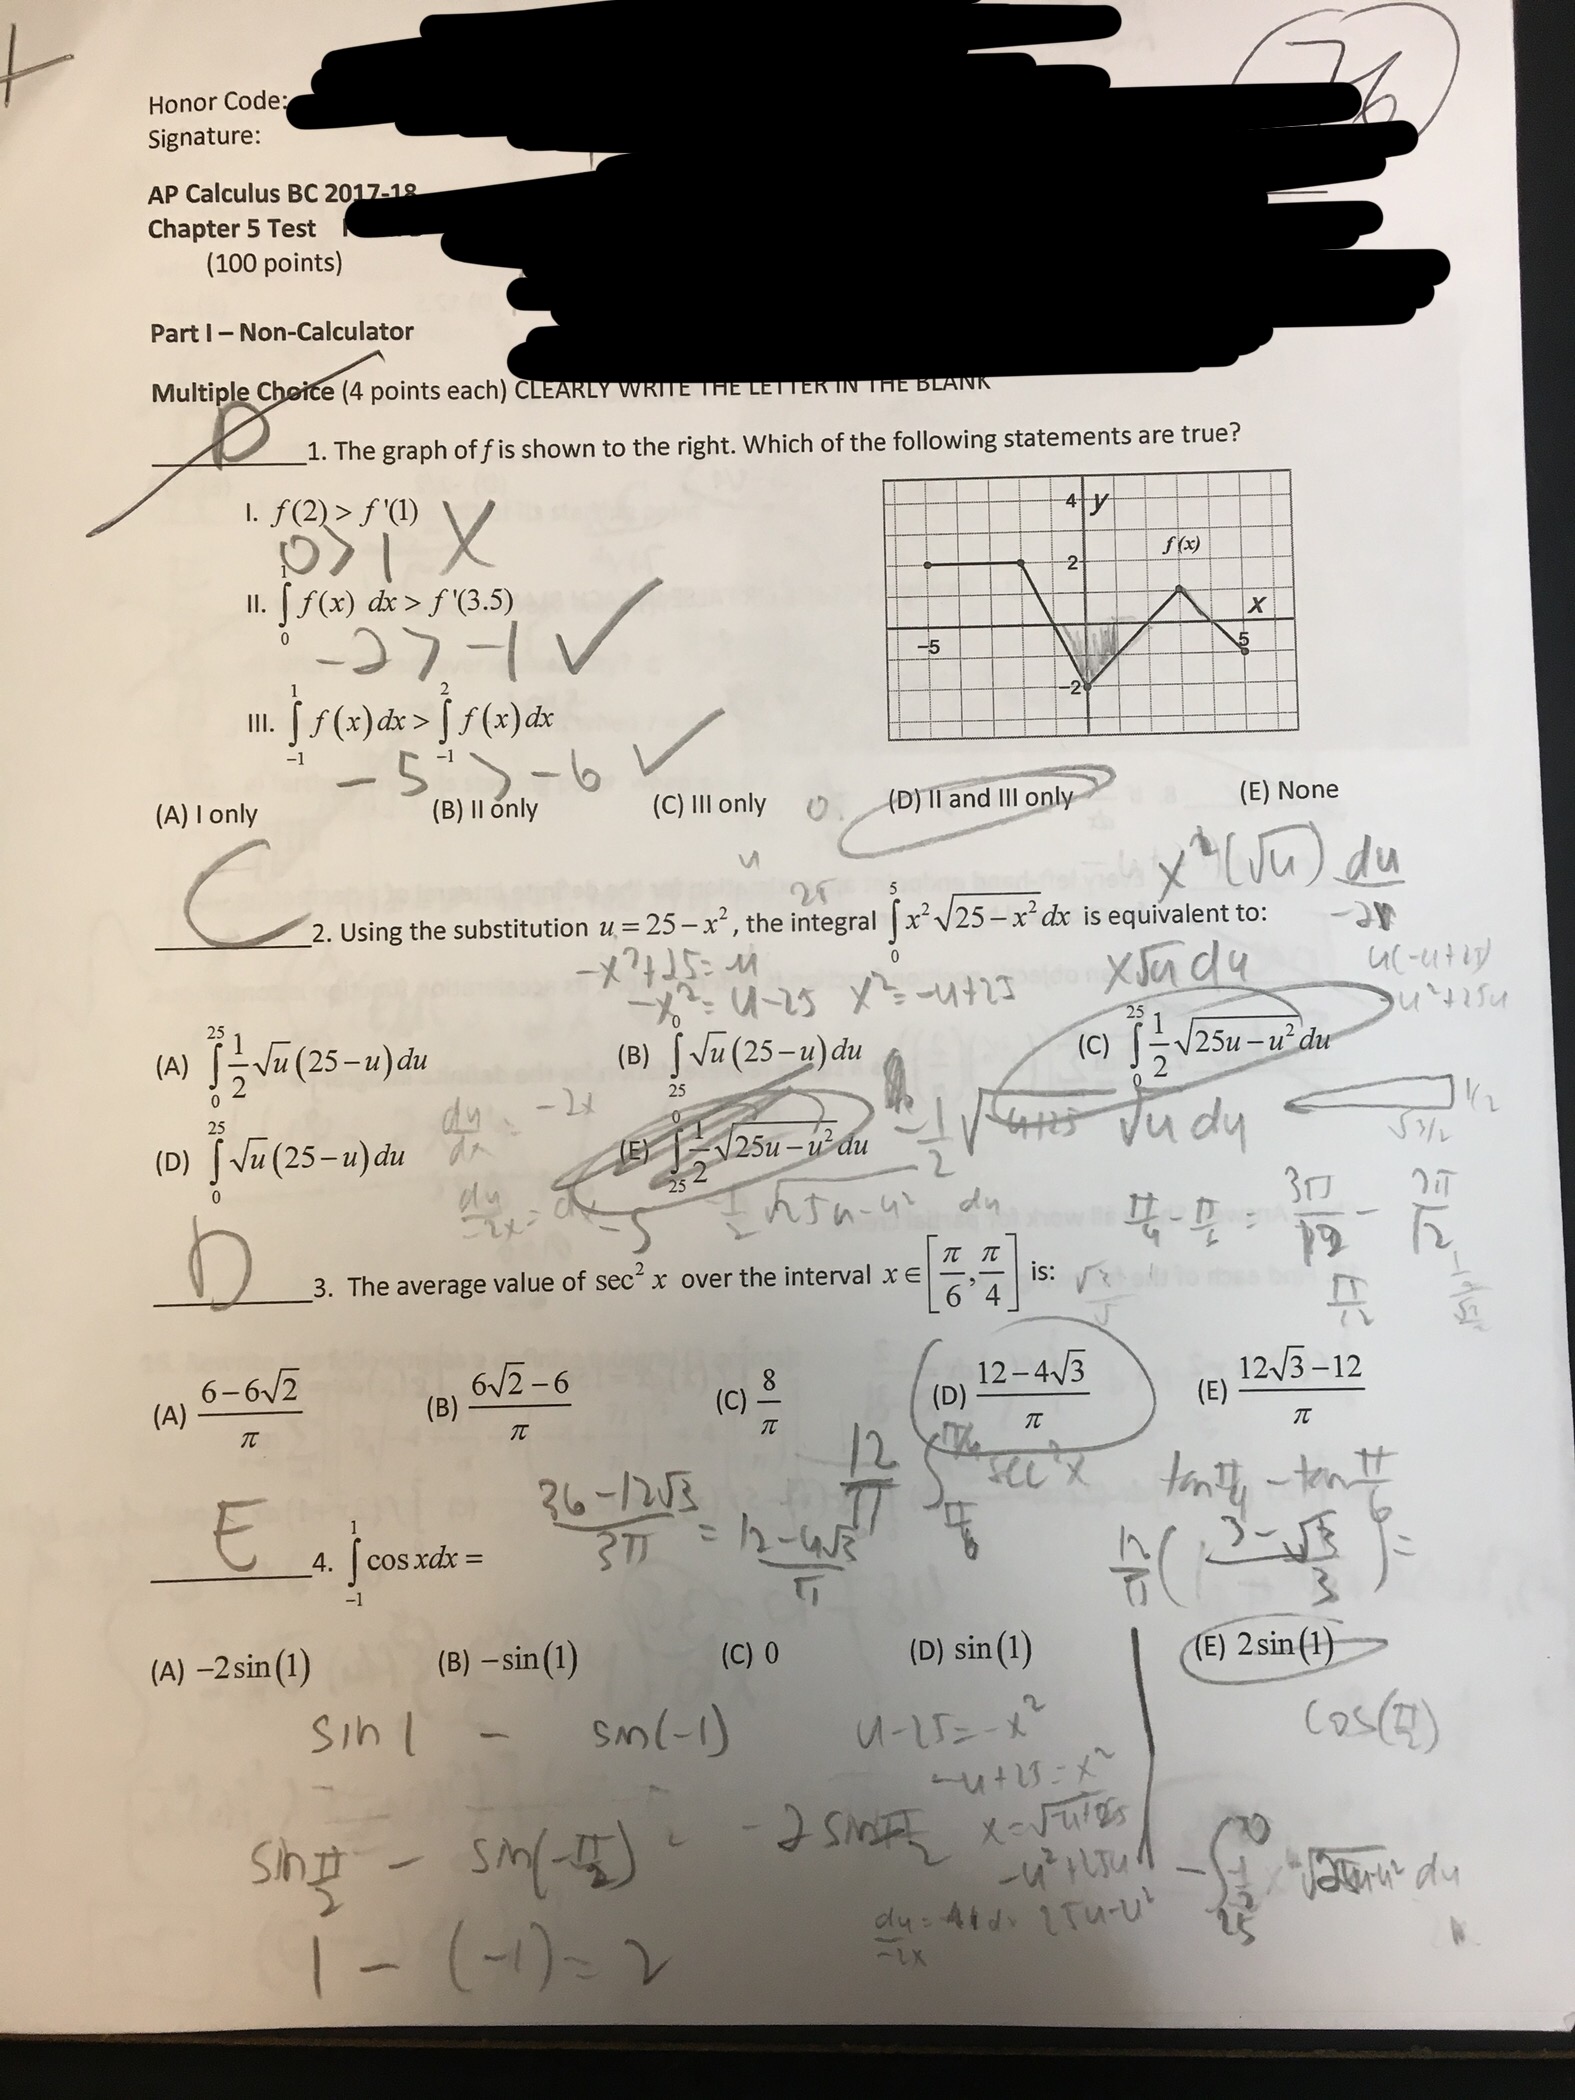 76
Honor Code:
Signature:
AP Calculus BC 2017-18
Chapter 5 Test
(100 points)
Part I – Non-Calculator
Multiple Choice (4 points each) CLEARLY WRITE THE LETTER IN THE BLANK
D 1. The graph of f is shown to the right. Which of the following statements are true?
I. f(2) > f '(1) X
0 > 1
II. ∫₀¹ f(x) dx > f '(3.5) ✓
-2 > -1
III. ∫₋₁¹ f(x) dx > ∫₋₁² f(x) dx ✓
-5 > -6
4 y
f(x)
2
x
-5
5
-2
(A) I only (B) II only (C) III only (D) II and III only (E) None
x² (√u) du
C 2. Using the substitution u = 25 – x², the integral ∫₀⁵ x²√(25 – x²) dx is equivalent to:
-x²+25=u x√u du
-x² = u-25 x² = -u+25
(A) ∫₀²⁵ ½√u (25 – u) du (B) ∫₂₅⁰ √u (25 – u) du (C) ∫₀²⁵ ½√(25u – u²) du
dy/dx = -2x √u du
(D) ∫₀²⁵ √u (25 – u) du (E) ∫₂₅⁰ ½√(25u – u²) du
-½ √(25u-u²) du
π/4 - π/6 = 3π/12 - 2π/12
π/12
D 3. The average value of sec² x over the interval x ∈ [π/6, π/4] is:
(A) (6 – 6√2)/π (B) (6√2 – 6)/π (C) 8/π (D) (12 – 4√3)/π (E) (12√3 – 12)/π
12/π ∫ sec²x tan π/4 - tan π/6
(36-12√3)/3π = (12-4√3)/π 12/π ( (3-√3)/3 ) =
E 4. ∫₋₁¹ cos x dx =
(A) –2sin(1) (B) –sin(1) (C) 0 (D) sin(1) (E) 2sin(1)
sin 1 - sin(-1) u-25=-x² cos(π/2)
-u+25=x²
sin π/2 - sin(-π/2) -2 sin π/2
-u²+25u
25u-u²
1 - (-1) = 2